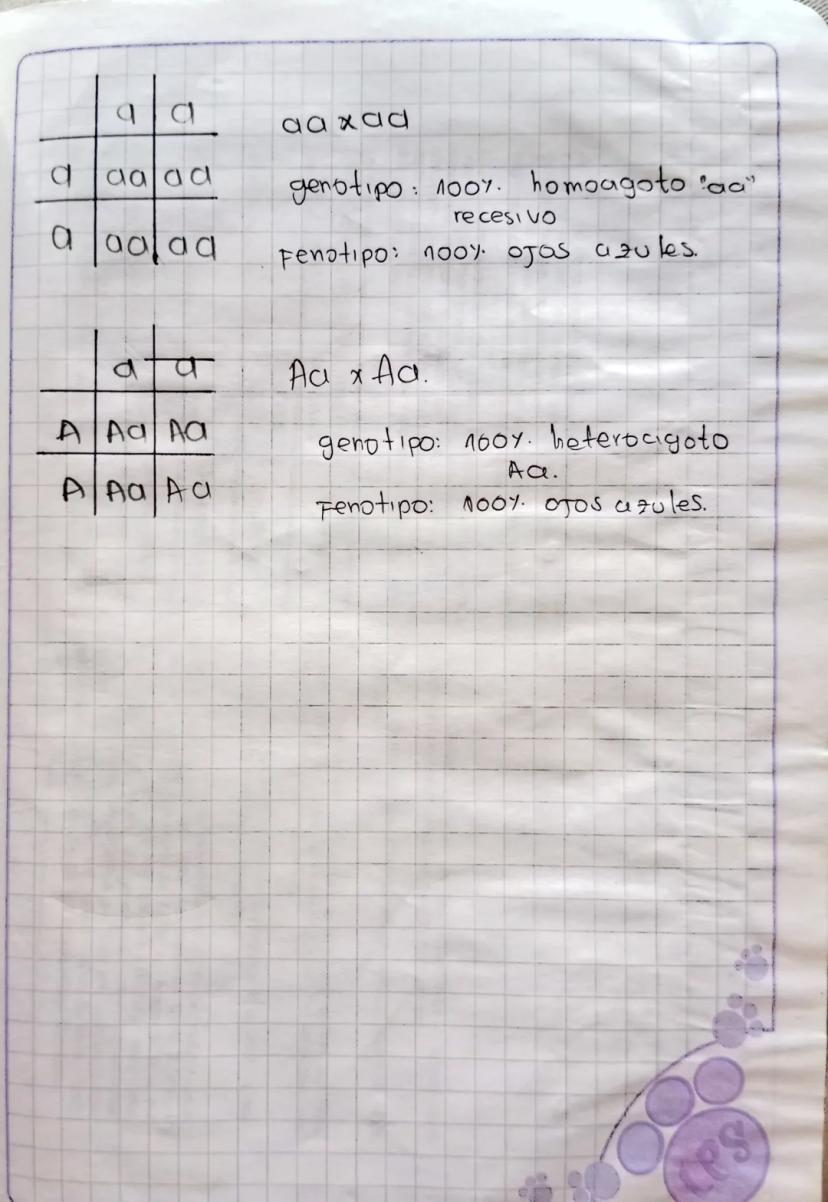 a a
a aa aa
a aa aa
aa x aa
genotipo: 100%. homoagoto "aa"
recesivo
Fenotipo: 100%. ojos azules.
a a
A Aa Aa
A Aa Aa
Aa x Aa.
genotipo: 100%. heterocigoto
Aa.
Fenotipo: 100%. ojos azules.